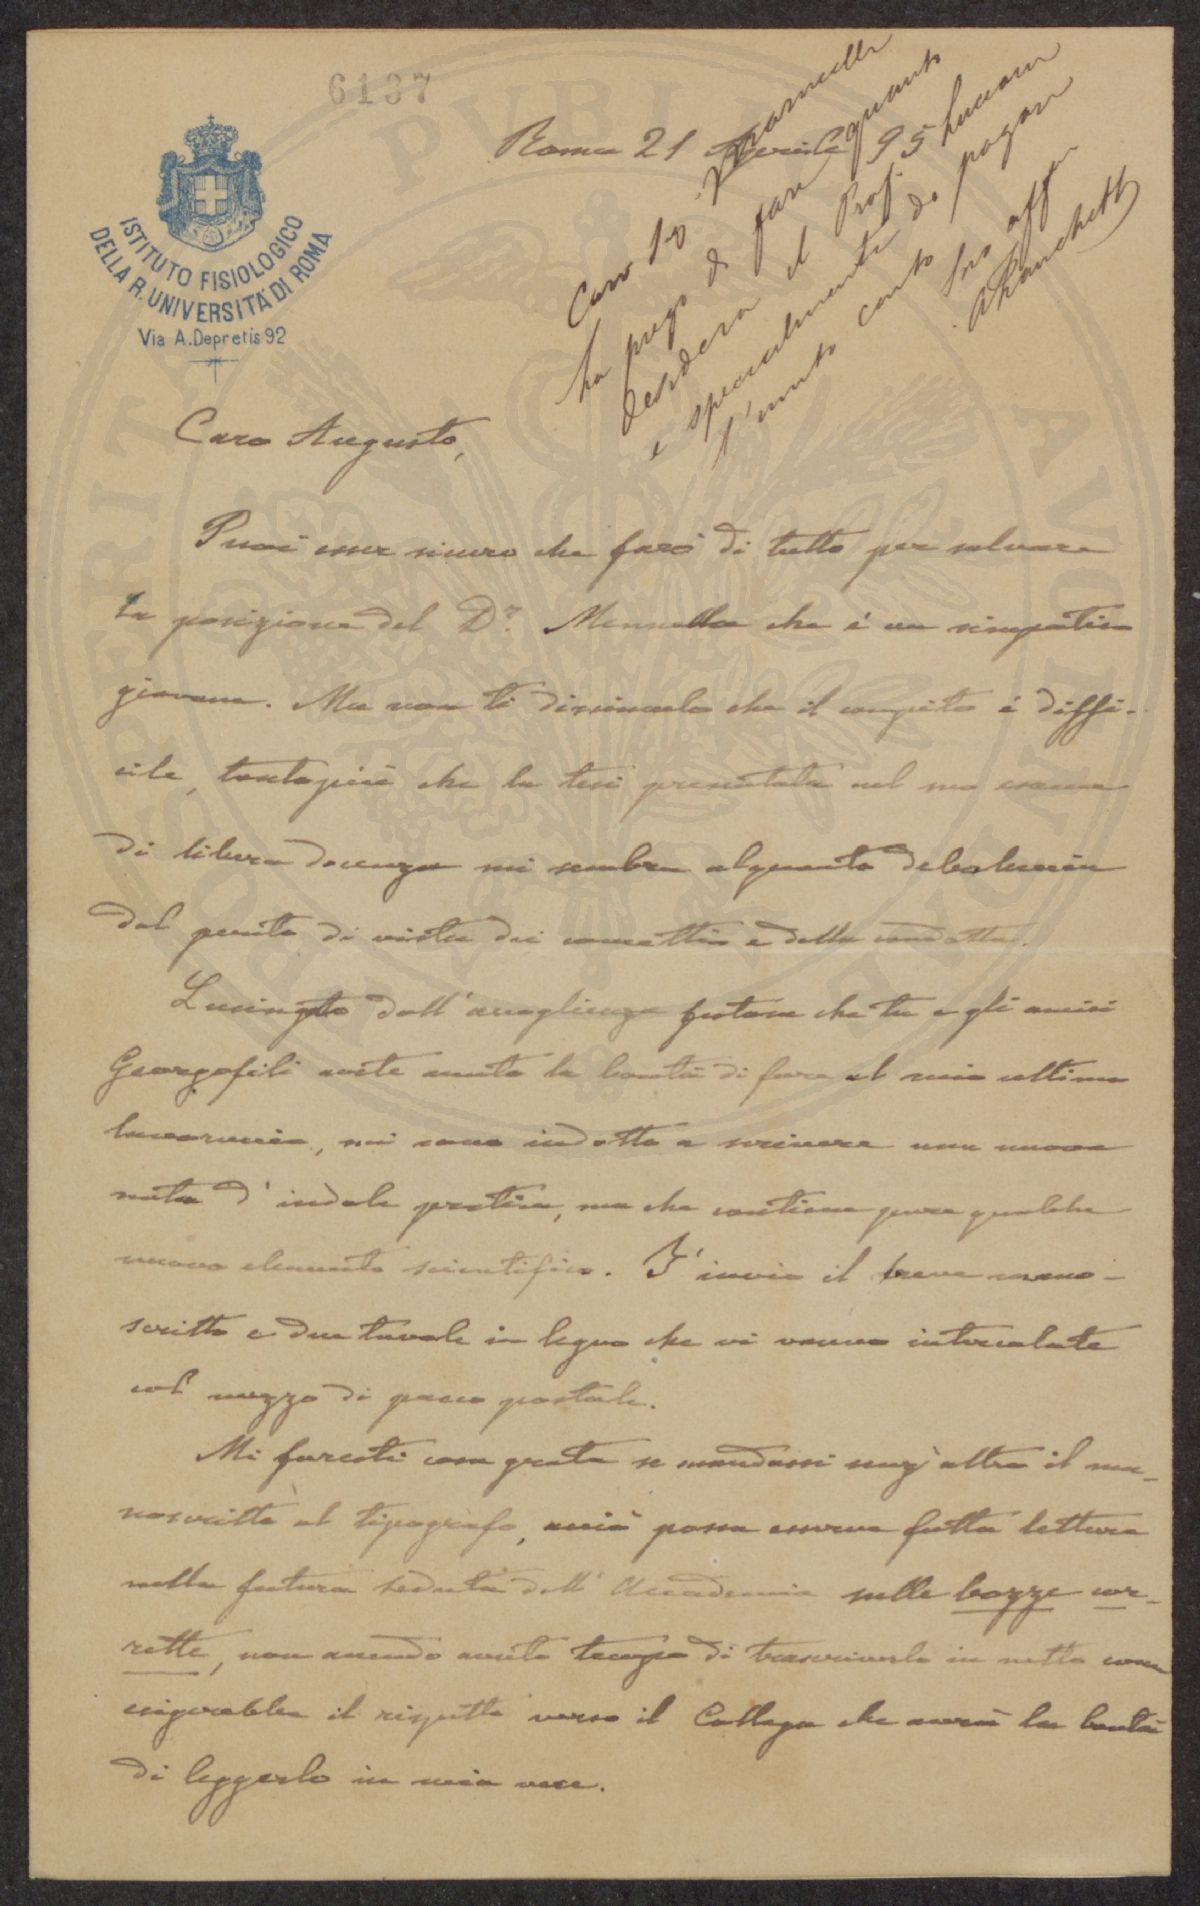 6137
ISTITUTO FISIOLOGICO
DELLA R. UNIVERSITÀ DI ROMA
Via A. Depretis 92
Roma 21 Aprile 95
Caro
La prego di fare quanto
desidera il Prof. Luciani
e specialmente da pagare
conto
Suo aff
Caro Augusto,
Puoi esser sicuro che farò di tutto per salvare
la posizione del Dr. Mennella che è un simpatico
giovane. Ma non ti dissimulo che il compito è diffi-
cile, tantopiù che la tesi presentata nel suo esame
di libera docenza mi sembra alquanto deboluccia
dal punto di vista dei concetti e della condotta.
Lusingato dall'accoglienza festosa che tu e gli amici
Georgofili avete avuto la bontà di fare al mio ultimo
lavoruccio, mi sono indotto a scrivere una nuova
nota d'indole pratica, ma che contiene pure qualche
nuovo elemento scientifico. T'invio il breve mano-
scritto e due tavole in legno che vi vanno intercalate
col mezzo di pacco postale.
Mi faresti cosa grata se mandassi senz'altro il ma-
noscritto al tipografo, acciò possa esserne fatta lettura
nella futura seduta dell'Accademia sulle bozze cor-
rette, non avendo avuto tempo di trascriverlo in netto come
esigerebbe il rispetto verso il Collega che avrà la bontà
di leggerlo in mia vece.